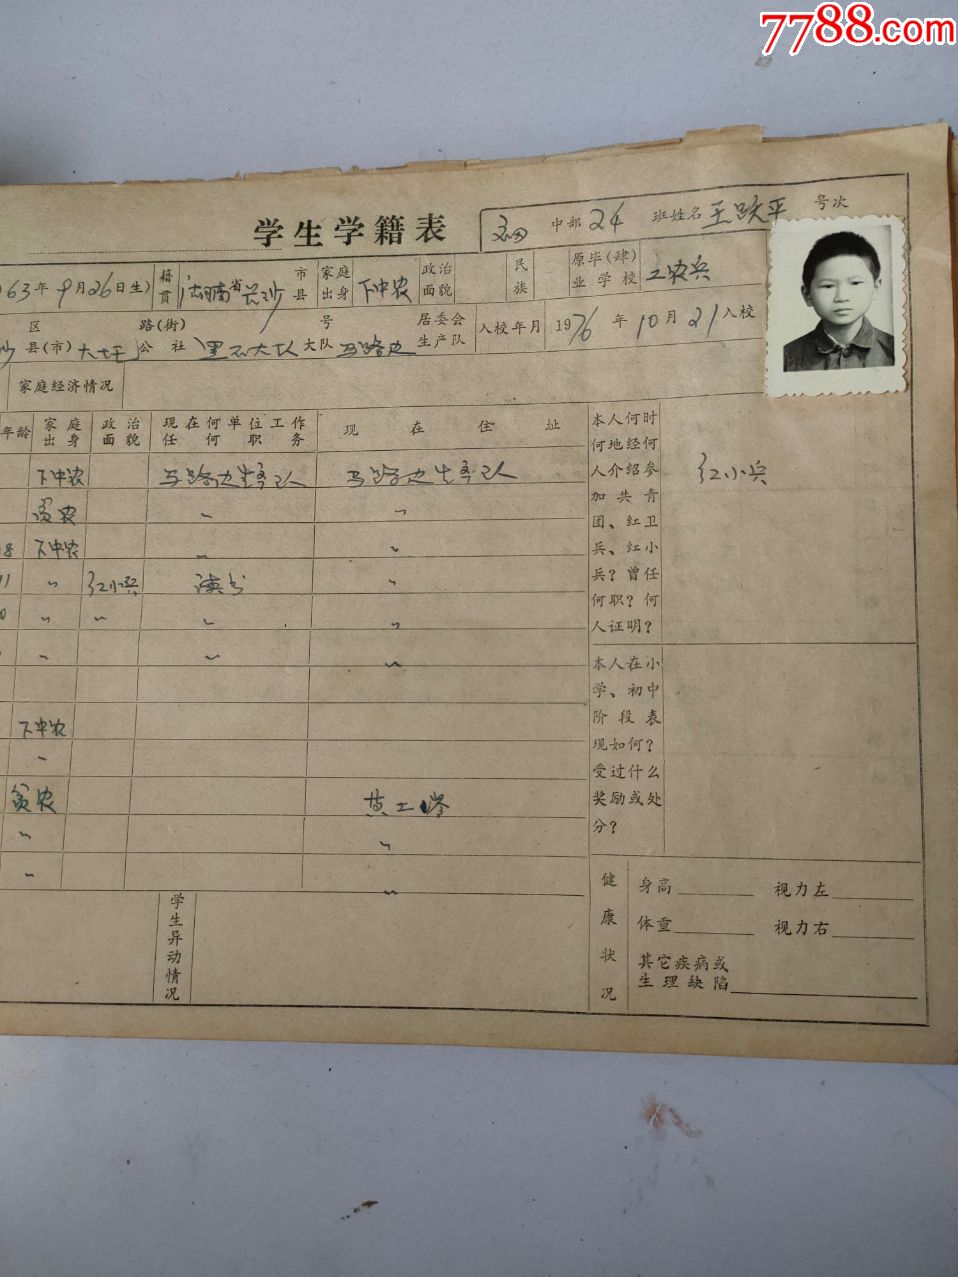 7788.com
学生学籍表 初中部24班姓名王跃平 号次
63年9月26日生) 籍贯 湖南省长沙市县 家庭出身 下中农 政治面貌 民族 原毕(肆)业学校 工农兵
区 路(街) 号 居委会 入校年月 1976年10月21入校
县(市) 大坪公社 大队 马路边 生产队
家庭经济情况
年龄 家庭出身 政治面貌 现在何单位工作任何职务 现在住址
下中农 马路边生产队 马路边生产队
贫农 〃 〃
18 下中农 〃 〃
11 〃 红小兵 读书 〃
〃 〃 〃 〃
〃 〃 〃
下中农
〃
贫农 黄土岭
〃 〃
〃 〃
学生异动情况
本人何时何地经何人介绍参加共青团、红卫兵、红小兵?曾任何职?何人证明?
红小兵
本人在小学、初中阶段表现如何?受过什么奖励或处分?
健康状况
身高 视力左
体重 视力右
其它疾病或生理缺陷